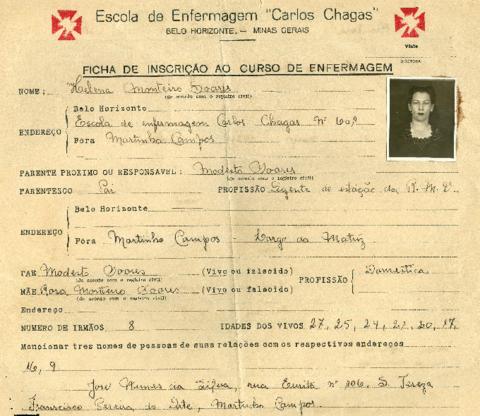 Escola de Enfermagem "Carlos Chagas"
BELO HORIZONTE. — MINAS GERAIS
Visto
DIRETORA
FICHA DE INSCRIÇÃO AO CURSO DE ENFERMAGEM
NOME: Helena Monteiro Soares
(de acordo com o registro civil)
ENDEREÇO
Belo Horizonte
Escola de enfermagem Carlos Chagas Nº 602
Fora Martinho Campos
PARENTE PROXIMO OU RESPONSAVEL: Modesto Soares
(de acordo com o registro civil)
PARENTESCO Pai PROFISSÃO Agente de estação da R. M. V.
ENDEREÇO
Belo Horizonte
Fora Martinho Campos - Largo da Matriz
PAE Modesto Soares (Vivo ou falecido) PROFISSÃO Domestica
(de acordo com o registro civil)
MÃE Rosa Monteiro Soares (Viva ou falecida)
(de acordo com o registro civil)
Endereço
NUMERO DE IRMÃOS 8 IDADES DOS VIVOS 27, 25, 24, 21, 20, 17,
Mencionar tres nomes de pessoas de suas relações com os respectivos endereços
16, 9
José Nunes da Silva, rua nº 106. S. Tereza
Francisco de, Martinho Campos